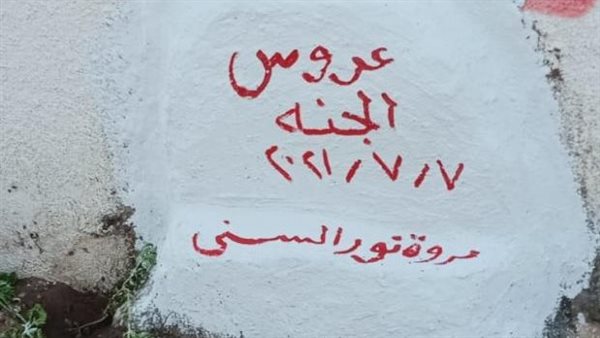 عروس
الجنه
٢٠٢١/٧/٧
مروة نور السنى